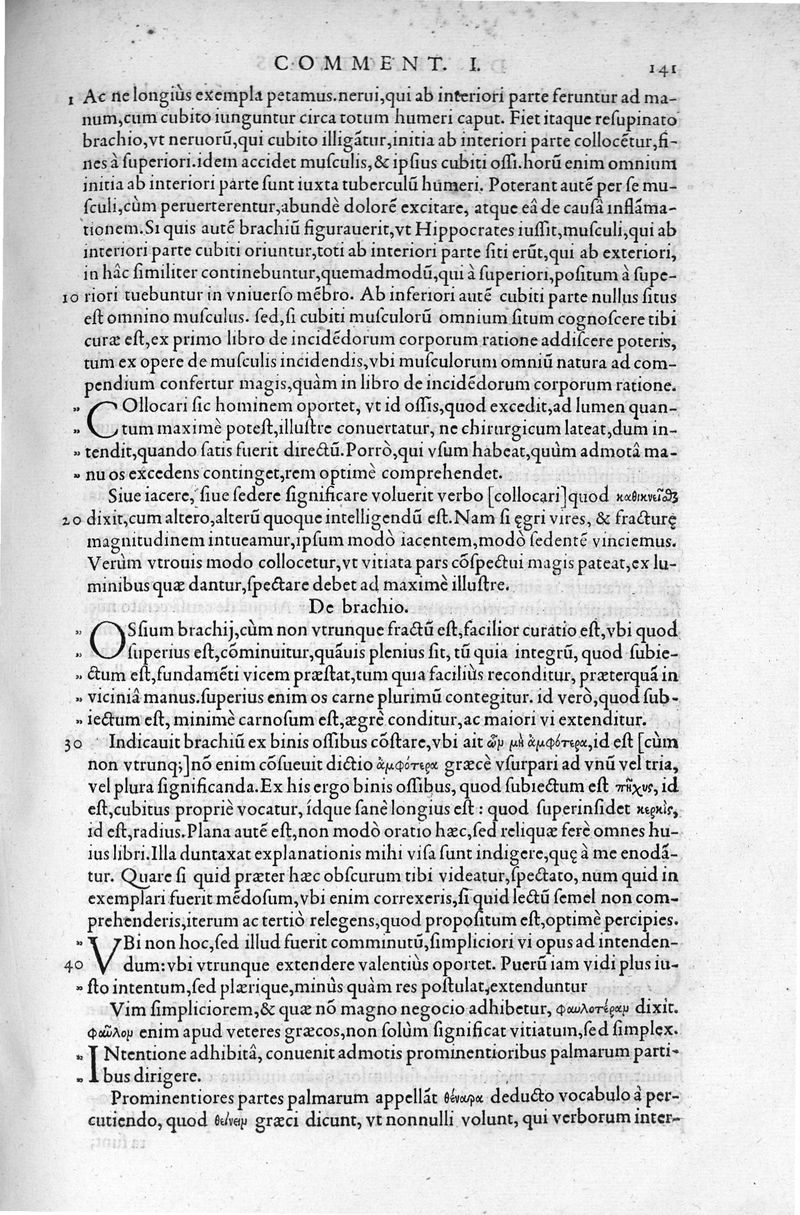 COMMENT. I. 141
1 Ac ne longiùs exempla petamus. nerui, qui ab interiori parte feruntur ad ma-
num, cum cubito iunguntur circa totum humeri caput. Fiet itaque resupinato
brachio, vt neruorũ, qui cubito illigãtur, initia ab interiori parte collocẽtur, fi-
nes à superiori. idem accidet musculis, & ipsius cubiti ossi. horũ enim omnium
initia ab interiori parte sunt iuxta tuberculũ humeri. Poterant autẽ per se mu-
sculi, cùm peruerterentur, abundè dolorẽ excitare, atque eâ de causâ inflãma-
tionem. Si quis autẽ brachiũ figurauerit, vt Hippocrates iussit, musculi, qui ab
interiori parte cubiti oriuntur, toti ab interiori parte siti erũt, qui ab exteriori,
in hâc similiter continebuntur, quemadmodũ, qui à superiori, positum à supe-
10 riori tuebuntur in vniuerso mẽbro. Ab inferiori autẽ cubiti parte nullus situs
est omnino musculus. sed, si cubiti musculorũ omnium situm cognoscere tibi
curæ est, ex primo libro de incidẽdorum corporum ratione addiscere poteris,
tum ex opere de musculis incidendis, vbi musculorum omniũ natura ad com-
pendium confertur magis, quàm in libro de incidẽdorum corporum ratione.
„ COllocari sic hominem oportet, vt id ossis, quod excedit, ad lumen quan-
„ tum maximè potest, illustre conuertatur, ne chirurgicum lateat, dum in-
„ tendit, quando satis fuerit directũ. Porrò, qui vsum habeat, quùm admotâ ma-
„ nu os excedens continget, rem optimè comprehendet.
Siue iacere, siue sedere significare voluerit verbo [collocari] quod καθικνεῖσθαι
20 dixit, cum altero, alterũ quoque intelligendũ est. Nam si ęgri vires, & fracturę
magnitudinem intueamur, ipsum modò iacentem, modò sedentẽ vinciemus.
Verùm vtrouis modo collocetur, vt vitiata pars cõspectui magis pateat, ex lu-
minibus quæ dantur, spectare debet ad maximè illustre.
De brachio.
„ OSsium brachij, cùm non vtrunque fractũ est, facilior curatio est, vbi quod
„ superius est, cõminuitur, quãuis plenius sit, tũ quia integrũ, quod subie-
„ ctum est, fundamẽti vicem præstat, tum quia faciliùs reconditur, præterquã in
„ viciniâ manus. superius enim os carne plurimũ contegitur. id verò, quod sub-
„ iectum est, minimè carnosum est, ægrè conditur, ac maiori vi extenditur.
30 Indicauit brachiũ ex binis ossibus cõstare, vbi ait ὧν μὴ ἀμφότερα, id est [cùm
non vtrunq;] nõ enim cõsueuit dictio ἀμφότερα græcè vsurpari ad vnũ vel tria,
vel plura significanda. Ex his ergo binis ossibus, quod subiectum est πῆχυς, id
est, cubitus propriè vocatur, ídque sanè longius est: quod superinsidet κερκὶς,
id est, radius. Plana autẽ est, non modò oratio hæc, sed reliquæ ferè omnes hu-
ius libri. Illa duntaxat explanationis mihi visa sunt indigere, quę à me enodã-
tur. Quare si quid præter hæc obscurum tibi videatur, spectato, num quid in
exemplari fuerit mẽdosum, vbi enim correxeris, si quid lectũ semel non com-
prehenderis, iterum ac tertiò relegens, quod propositum est, optimè percipies.
„ VBi non hoc, sed illud fuerit comminutũ, simpliciori vi opus ad intenden-
40 dum: vbi vtrunque extendere valentiùs oportet. Puerũ iam vidi plus iu-
„ sto intentum, sed plærique, minùs quàm res postulat, extenduntur
Vim simpliciorem, & quæ nõ magno negocio adhibetur, φαυλοτέραν dixit.
φαῦλον enim apud veteres græcos, non solùm significat vitiatum, sed simplex.
„ INtentione adhibitâ, conuenit admotis prominentioribus palmarum parti-
„ bus dirigere.
Prominentiores partes palmarum appellãt θέναρα deducto vocabulo à per-
cutiendo, quod θείνειν græci dicunt, vt nonnulli volunt, qui verborum inter-